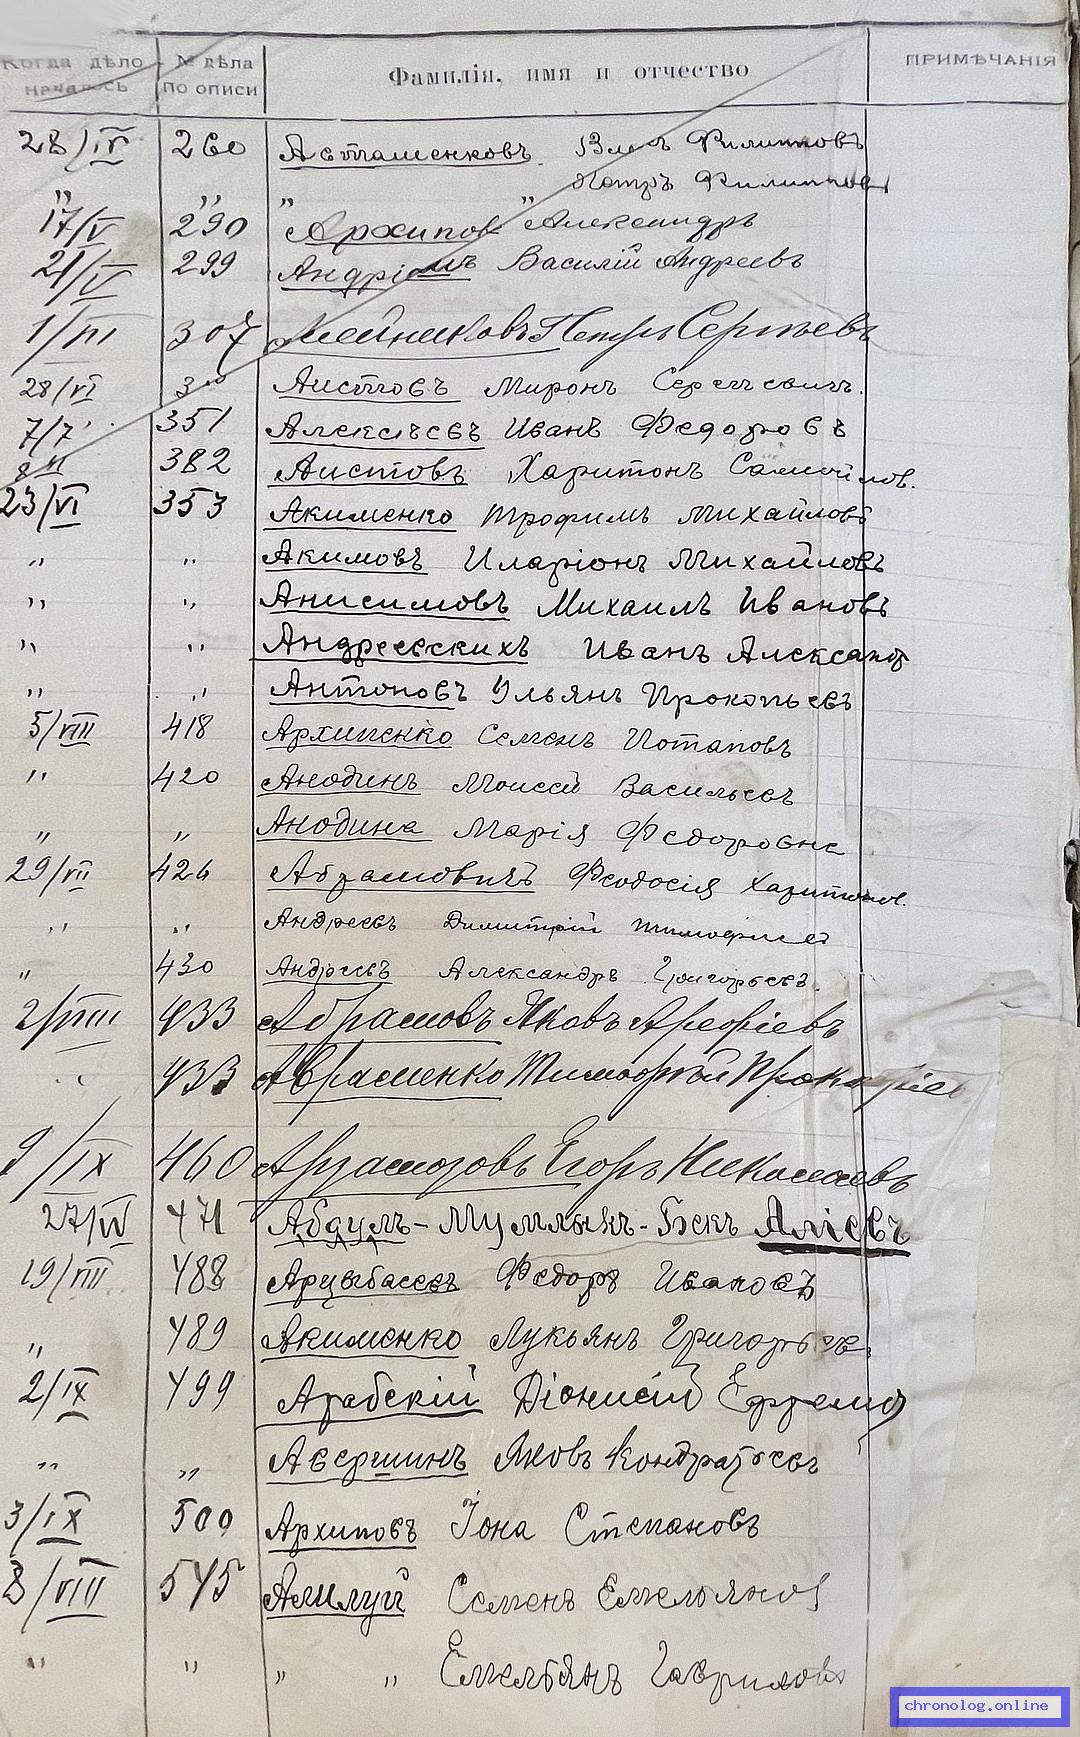 Когда дѣло началось № дѣла по описи Фамилія, имя и отчество ПРИМѢЧАНІЯ
28/IV 260 Асташенковъ Филипповъ
„ „ „ „ Петръ Филипповъ
17/V 290 Архипов Александръ
21/V 299 Василій Андреевъ
1/VI 307 Петръ Сергѣевъ
28/VI Аистовъ Миронъ Сергѣевичъ.
7/7 351 Алексѣевъ Иванъ Федоровъ
382 Аистовъ Харитонъ Самойлов.
23/VI 353 Акименко Трофимъ Михайловъ
„ „ Акимовъ Иларіонъ Михайловъ
„ „ Анисимовъ Михаилъ Ивановъ
„ „ Андреевскихъ Иванъ Александр
„ „ Антоновъ Ульянъ Прокопьевъ
5/VIII 418 Архипенко Семенъ Потаповъ
„ 420 Анодинъ Моисей Васильевъ
„ „ Анодина Марія Федоровна
29/VII 426 Абрамовичъ Феодосія Харитонов.
„ „ Андреевъ Димитрій Тимофеев
„ 430 Андреевъ Александръ Григорьевъ.
2/VIII 433 Абрамовъ Яковъ Арефіевъ
433 Авраменко Тимофѣй
9/IX 460 Арзамозовъ Егоръ Николаевъ
27/VI 471 Абдулъ-Мумлыкъ-Бекъ Аліевъ
19/VIII 488 Арцыбасевъ Федоръ Ивановъ
„ 489 Акименко Лукьянъ Григорьев.
2/IX 499 Арабскій Діонисій Ефремов
„ „ Авершинъ Яковъ Кондратьевъ
3/IX 500 Архиповъ Іона Степановъ
8/VIII 545 Аншуй Семенъ Емельянов
„ „ „ „ Емельянъ Гавриловъ
chronolog.online